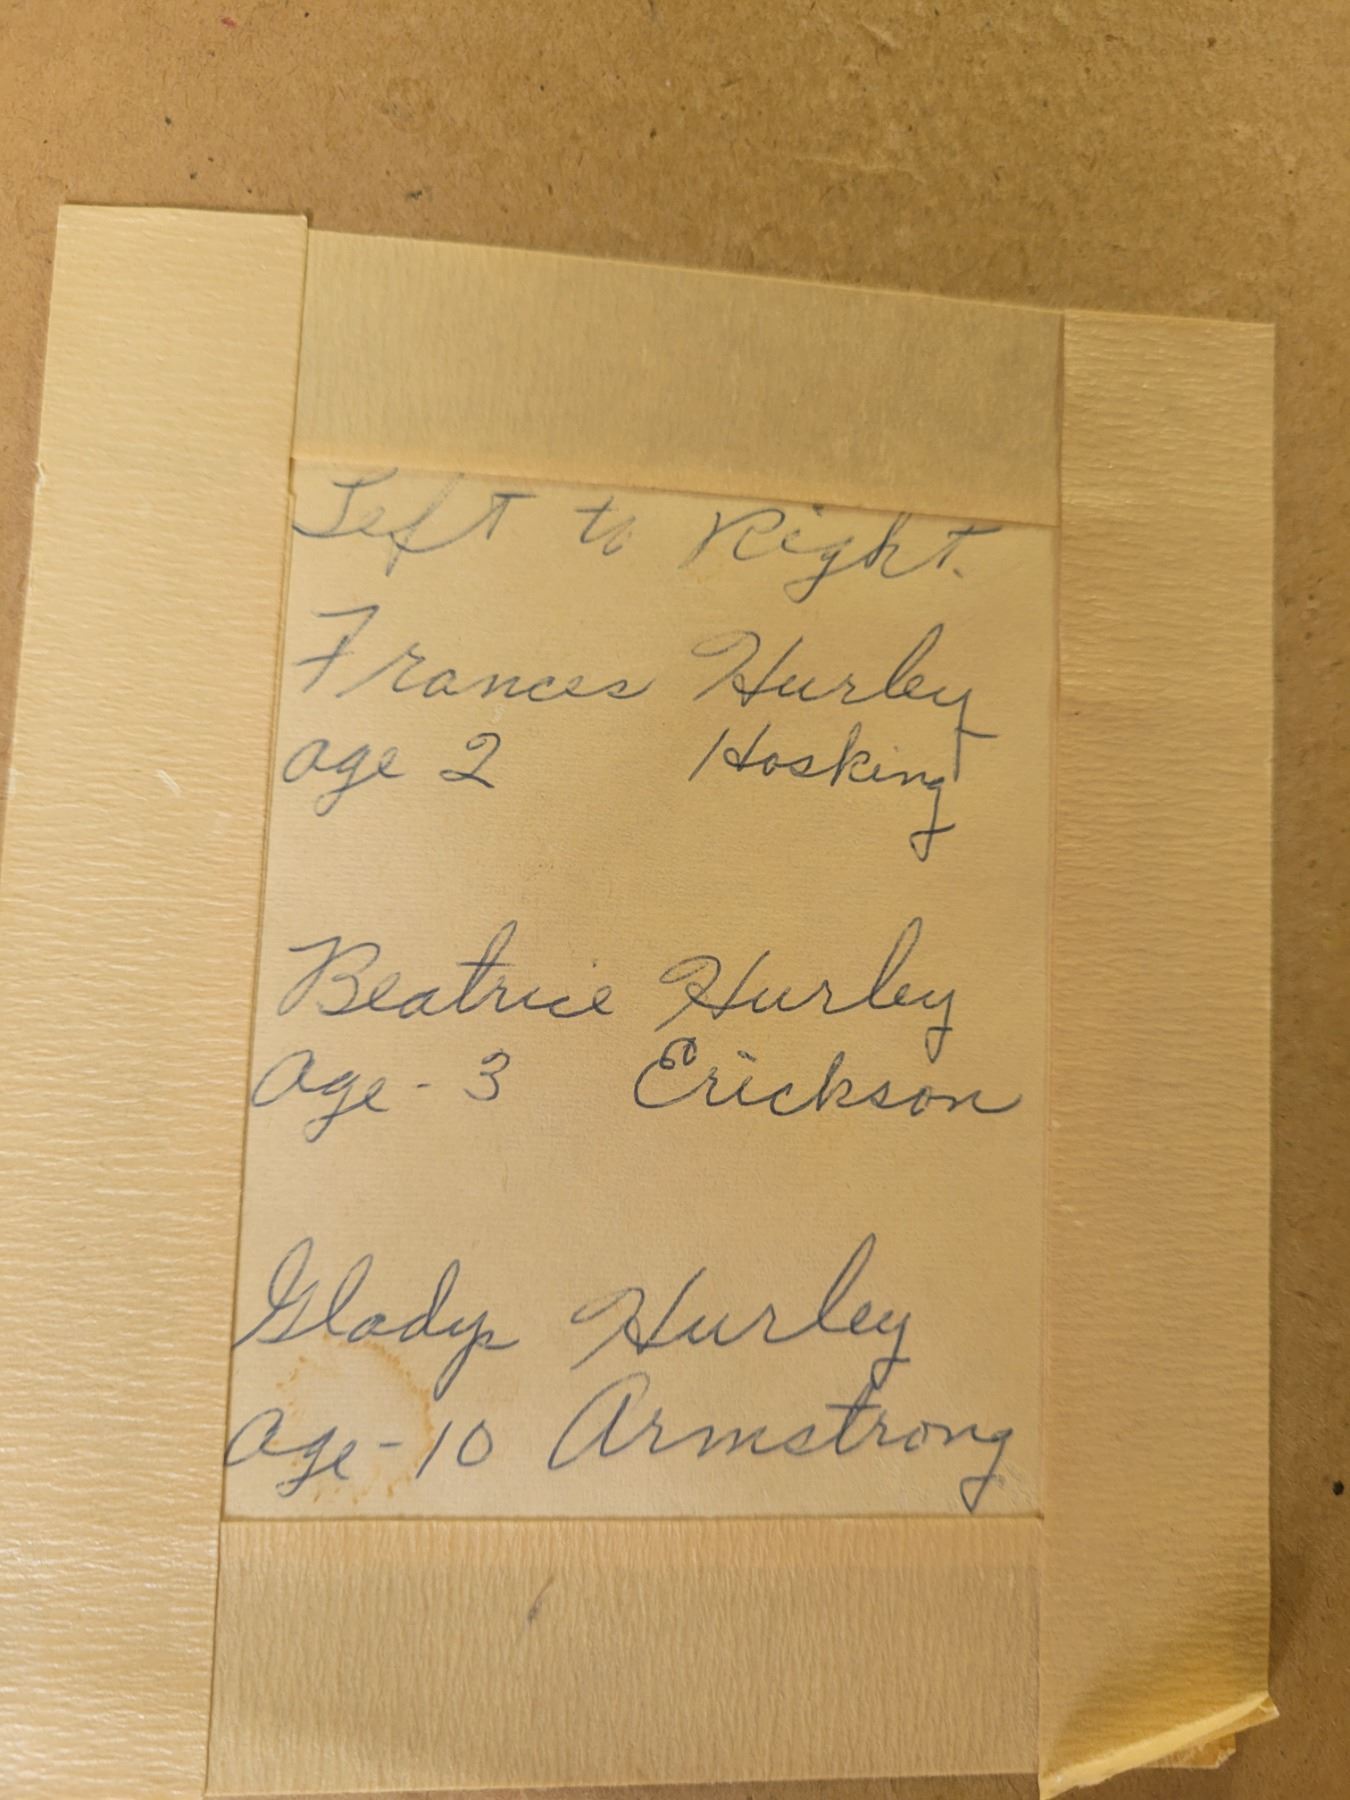 Left to Right.
Frances Hurley
age 2 Hosking
Beatrice Hurley
age - 3 Erickson
Gladys Hurley
age - 10 Armstrong